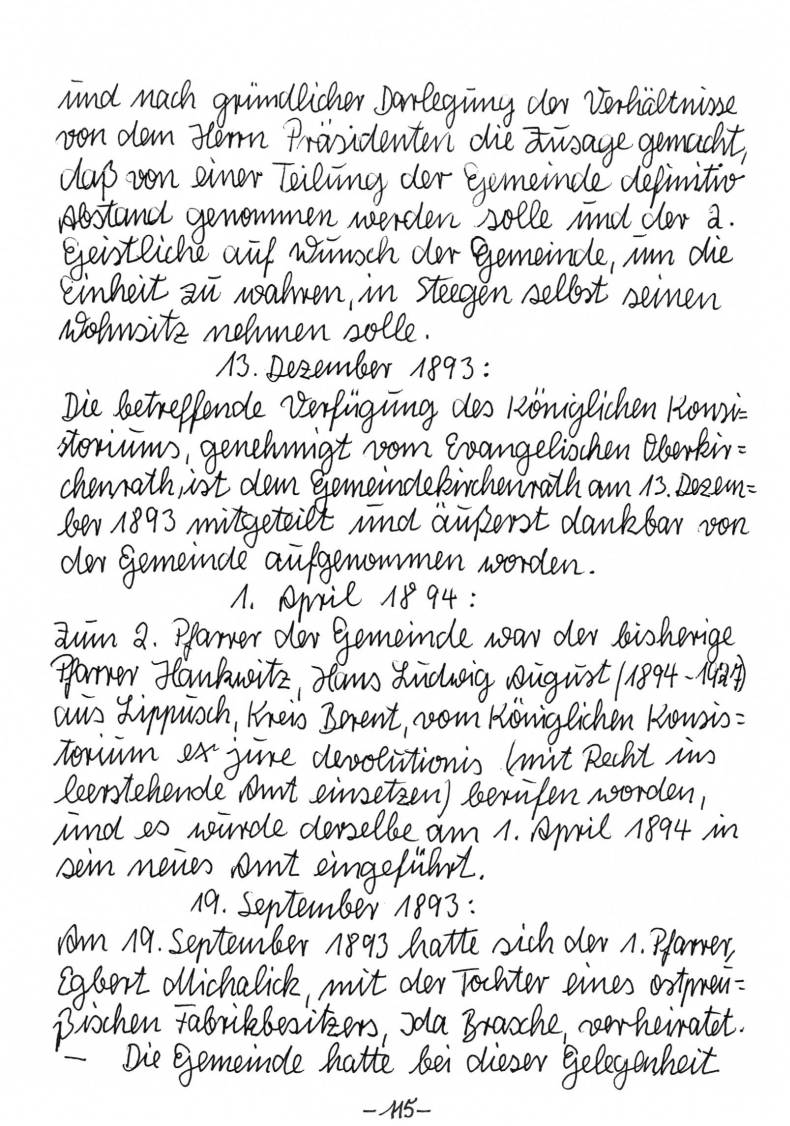 und nach gründlicher Darlegung der Verhältnisse
von dem Herrn Präsidenten die Zusage gemacht,
daß von einer Teilung der Gemeinde definitiv
Abstand genommen werden solle und der 2.
Geistliche auf Wunsch der Gemeinde, um die
Einheit zu wahren, in Steegen selbst seinen
Wohnsitz nehmen solle.
13. Dezember 1893:
Die betreffende Verfügung des Königlichen Konsi=
storiums, genehmigt vom Evangelischen Oberkir=
chenrath, ist dem Gemeindekirchenrath am 13. Dezem=
ber 1893 mitgeteilt und äußerst dankbar von
der Gemeinde aufgenommen worden.
1. April 1894:
Zum 2. Pfarrer der Gemeinde war der bisherige
Pfarrer Hankwitz, Hans Ludwig August (1894-1927)
aus Lippusch, Kreis Berent, vom Königlichen Konsis=
torium ex jure devolutionis (mit Recht ins
leerstehende Amt einsetzen) berufen worden,
und es wurde derselbe am 1. April 1894 in
sein neues Amt eingeführt.
19. September 1893:
Am 19. September 1893 hatte sich der 1. Pfarrer,
Egbert Michalick, mit der Tochter eines ostpreu=
ßischen Fabrikbesitzers, Ida Brasche, verheiratet.
– Die Gemeinde hatte bei dieser Gelegenheit
-115-